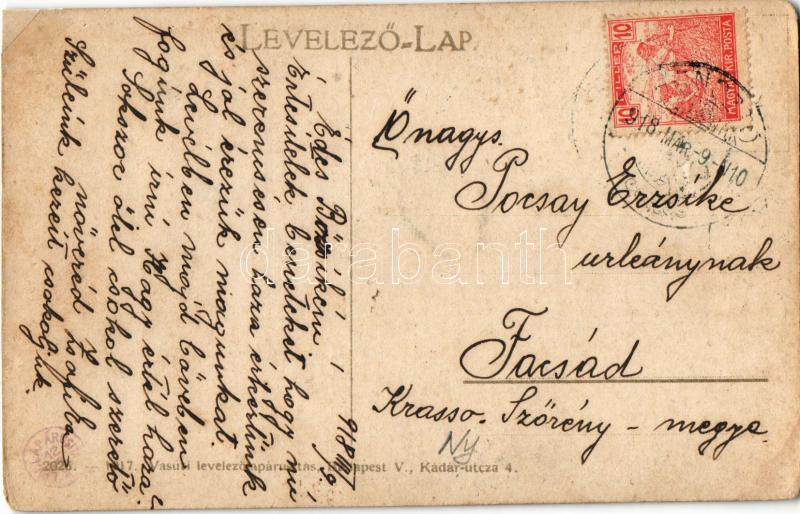 LEVELEZŐ-LAP
10 FILLÉR 10
MAGYAR KIR. POSTA
918 MÁR. -9.
Édes Bözsikém!
918 III/9
Értesítelek benneteket hogy mi
szerencsésen haza érkeztünk
és jól érezzük magunkat.
Levélben majd bővebben
fogunk írni. Hagy értél haza?
Sokszor ölel csókol szerető
nővéred Zsófika
Szüleink kezeit csókoljuk.
Őnagys.
Pocsay Erzsike
urleánynak
Facsád
Krasso-Szörény-megye.
Ny
2026. — 1917. Vasuti levelezőlapárusitás, Budapest V., Kádár-utcza 4.
darabanth